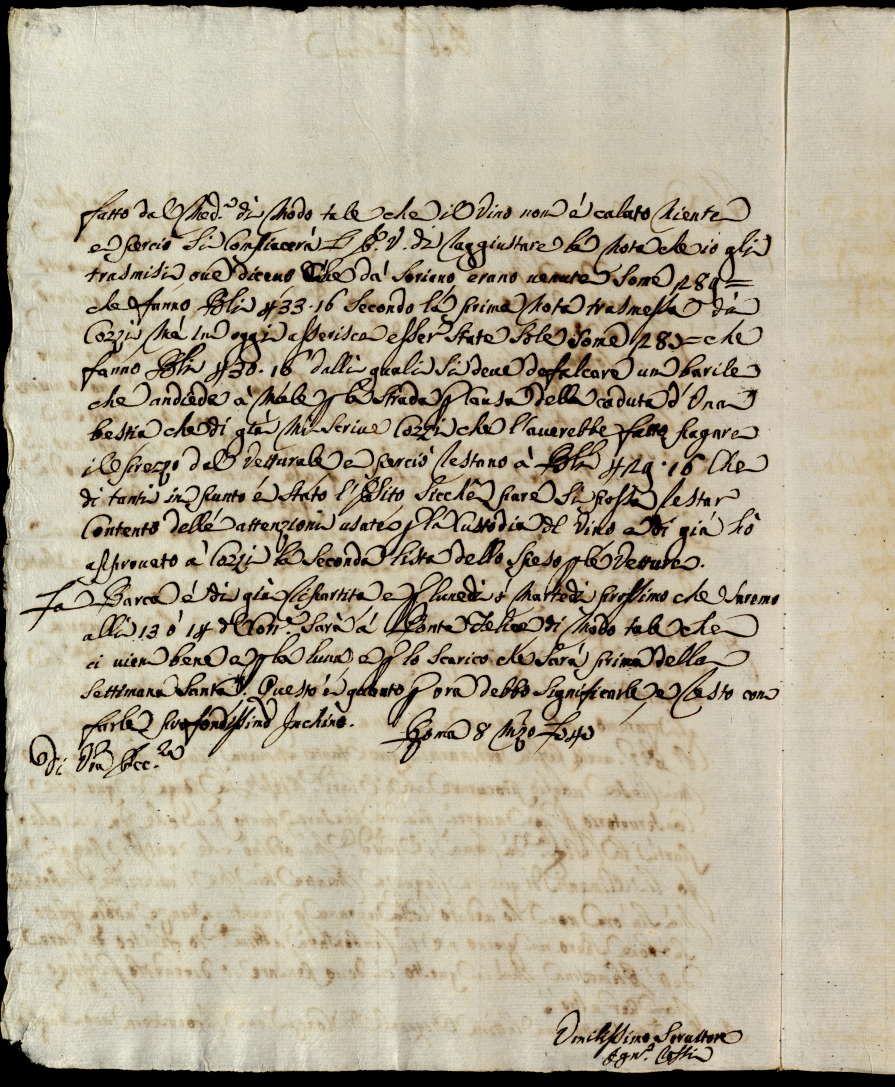 fatto dal Med.º di Modo tale che il Vino non é calato Niente
e perciò Si Compiacerà di raggiustare la Nota che io gli
trasmisi ove diceuo Che da Soriano erano uenute Some
che fanno secondo la prima Nota trasmessa da
Cozzi Mà in oggi asserisce esser State Sole Some che
fanno dalli quali Si deue defalcare un barile
che andiede à Male p la Strada p Causa della caduta d'Una
bestia che di già Mi Scriue Cozzi che l'auerebbe fatto pagare
il prezzo dal Vetturale e perciò restano à che
di tanti in punto é Stato l' Sicche pare Si possa restar
Contento delle attenzioni usate p la Custodia del Vino e di già hò
approuato à Cozzi la Seconda lista delle Spese p le Vetture.
La Barca é di già ripartita e p lunedì ò Martedì prossimo che Saremo
alli 13 ò 14 del Corr.e Sarà à Ponte Felice di Modo tale che
ci uien bene e p la luna e p lo Scarico che Sarà prima della
Settimana Santa. Questo é quanto p ora debbo Significarle, e resto con
farle profondissimo Inchino. Roma 8
Di V̄ra Ecc.za
Umilissimo Seruitore